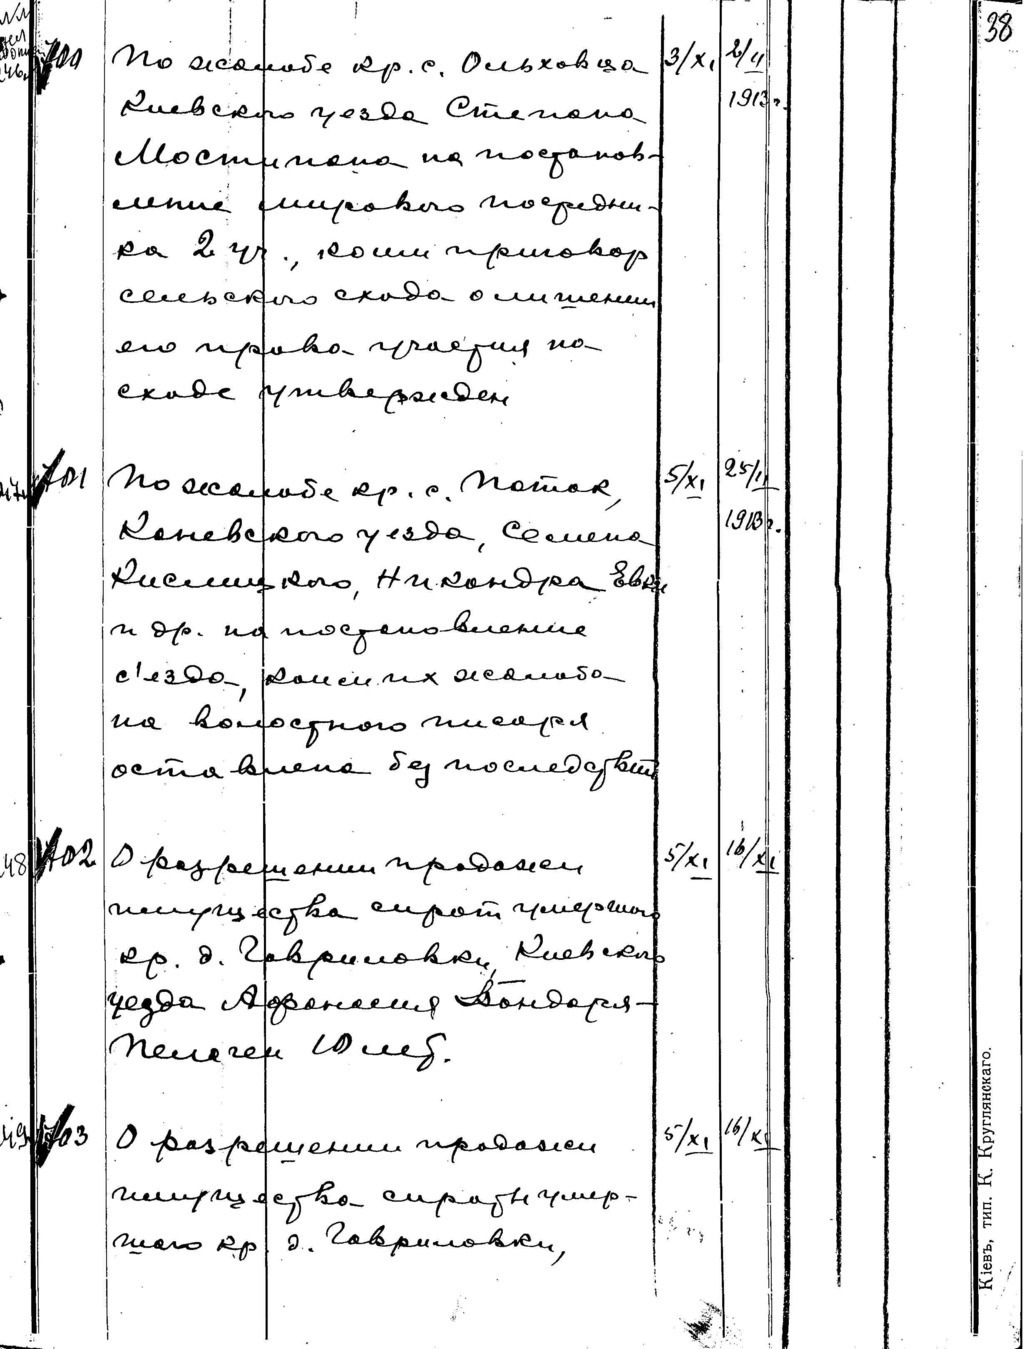 38
700 По жалобе кр. с. Ольховца 3/XI 2/II
Киевского уезда Степана 1913 г.
Мостипана на постанов-
ление мирового посредни-
ка 2 уч., коим приговор
сельского схода о лишении
его права участия на
сходе утвержден
701 По жалобе кр. с. Поток, 5/XI 25/II
Каневского уезда, Семена 1913 г.
Кислицкого, Никандра
и др. на постановление
с'езда, коим их жалоба
на волостного писаря
оставлена без последствий
48 702 О разрешении продажи 5/XI 16/XI
имущества сирот умершого
кр. д. Гавриловки, Киевского
уезда Афанасия Бондаря-
Пелагеи 10 лет.
703 О разрешении продажи 5/XI 16/XI
имущества сироты умер-
шого кр. д. Гавриловки,
Кіевъ, тип. К. Круглянскаго.